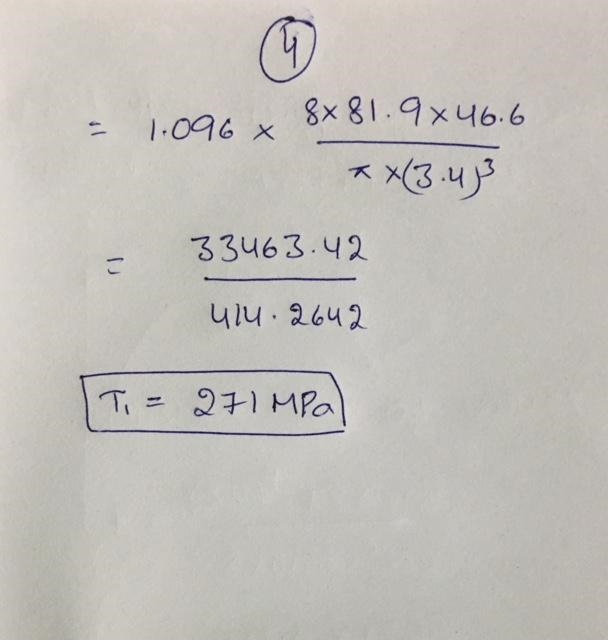 4
= 1.096 × 8×81.9×46.6
π×(3.4)³
= 33463.42
414.2642
T₁ = 271 MPa